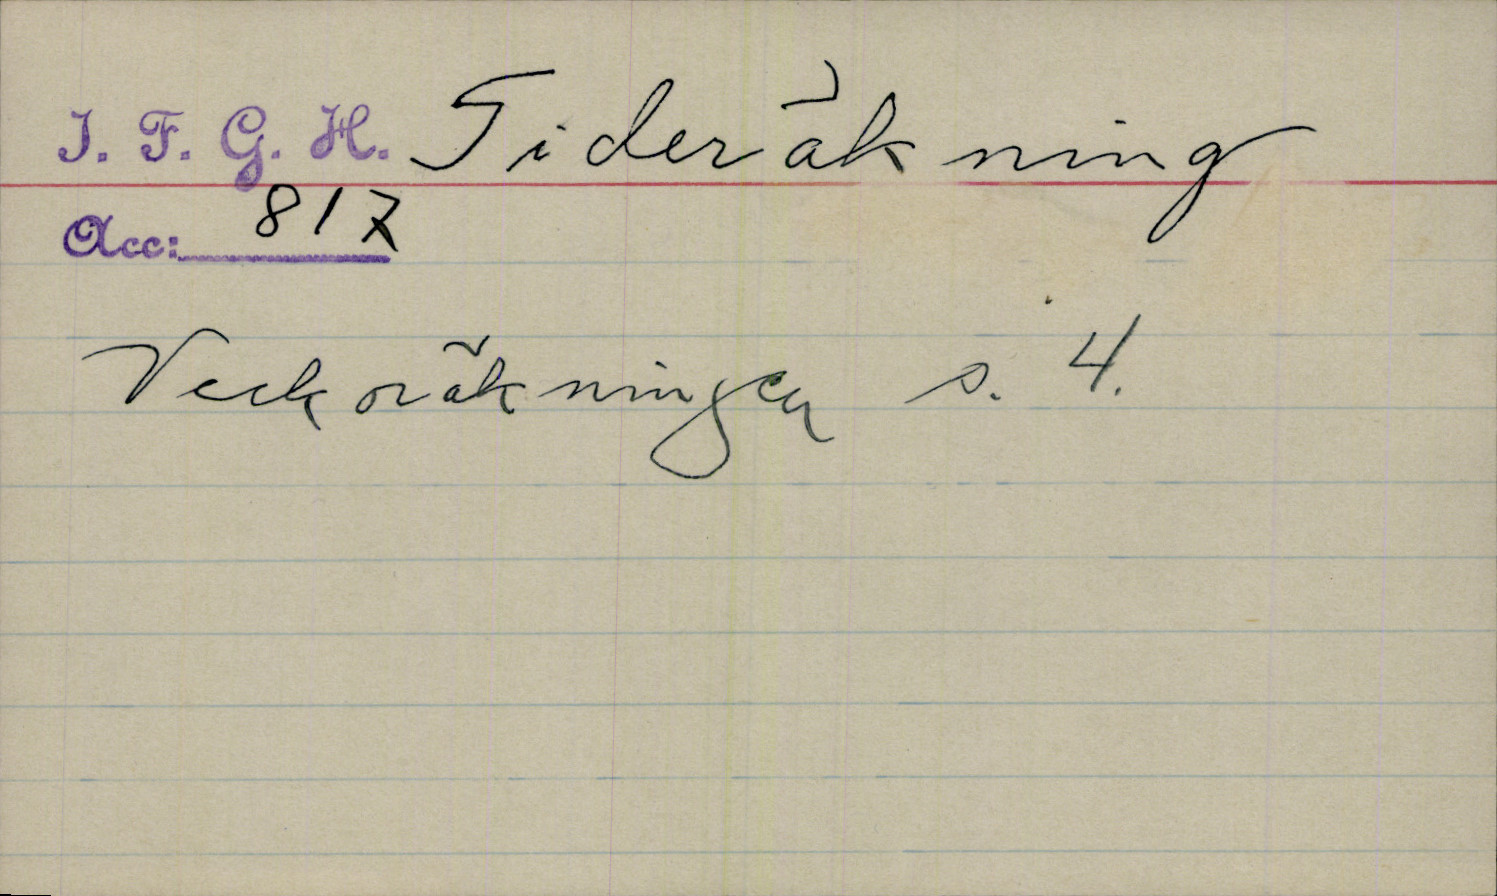 I. F. G. H. Tideräkning
Acc: 817
Veckoräkningen s. 4.